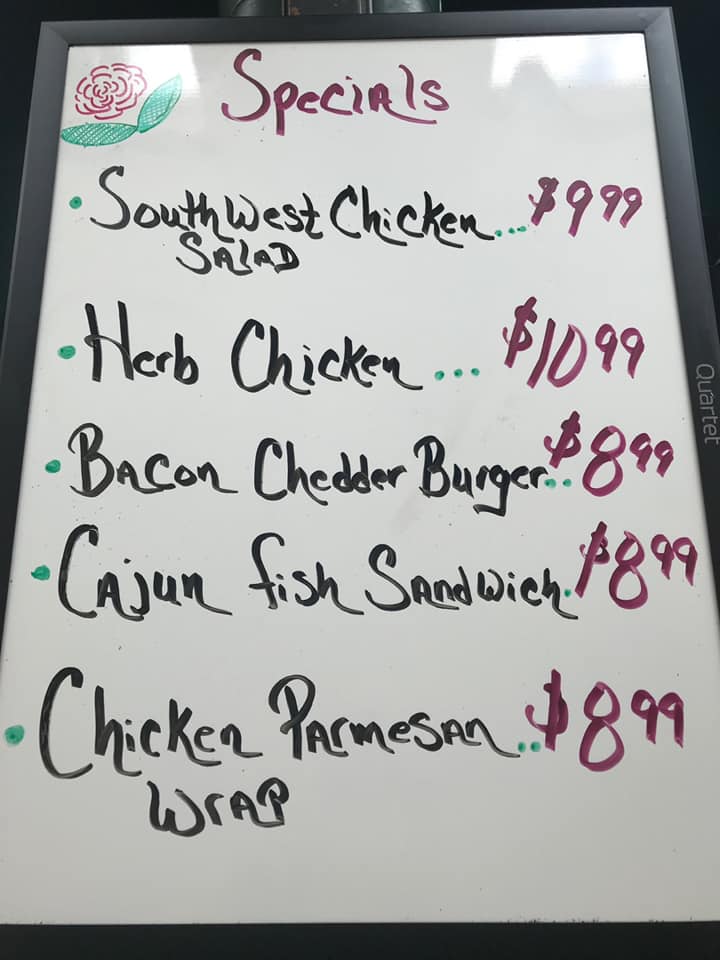 Specials
• SouthWest Chicken...$9.99
Salad
• Herb Chicken ... $10.99
• Bacon Chedder Burger..$8.99
• Cajun fish Sandwich.$8.99
• Chicken Parmesan..$8.99
Wrap
Quartet